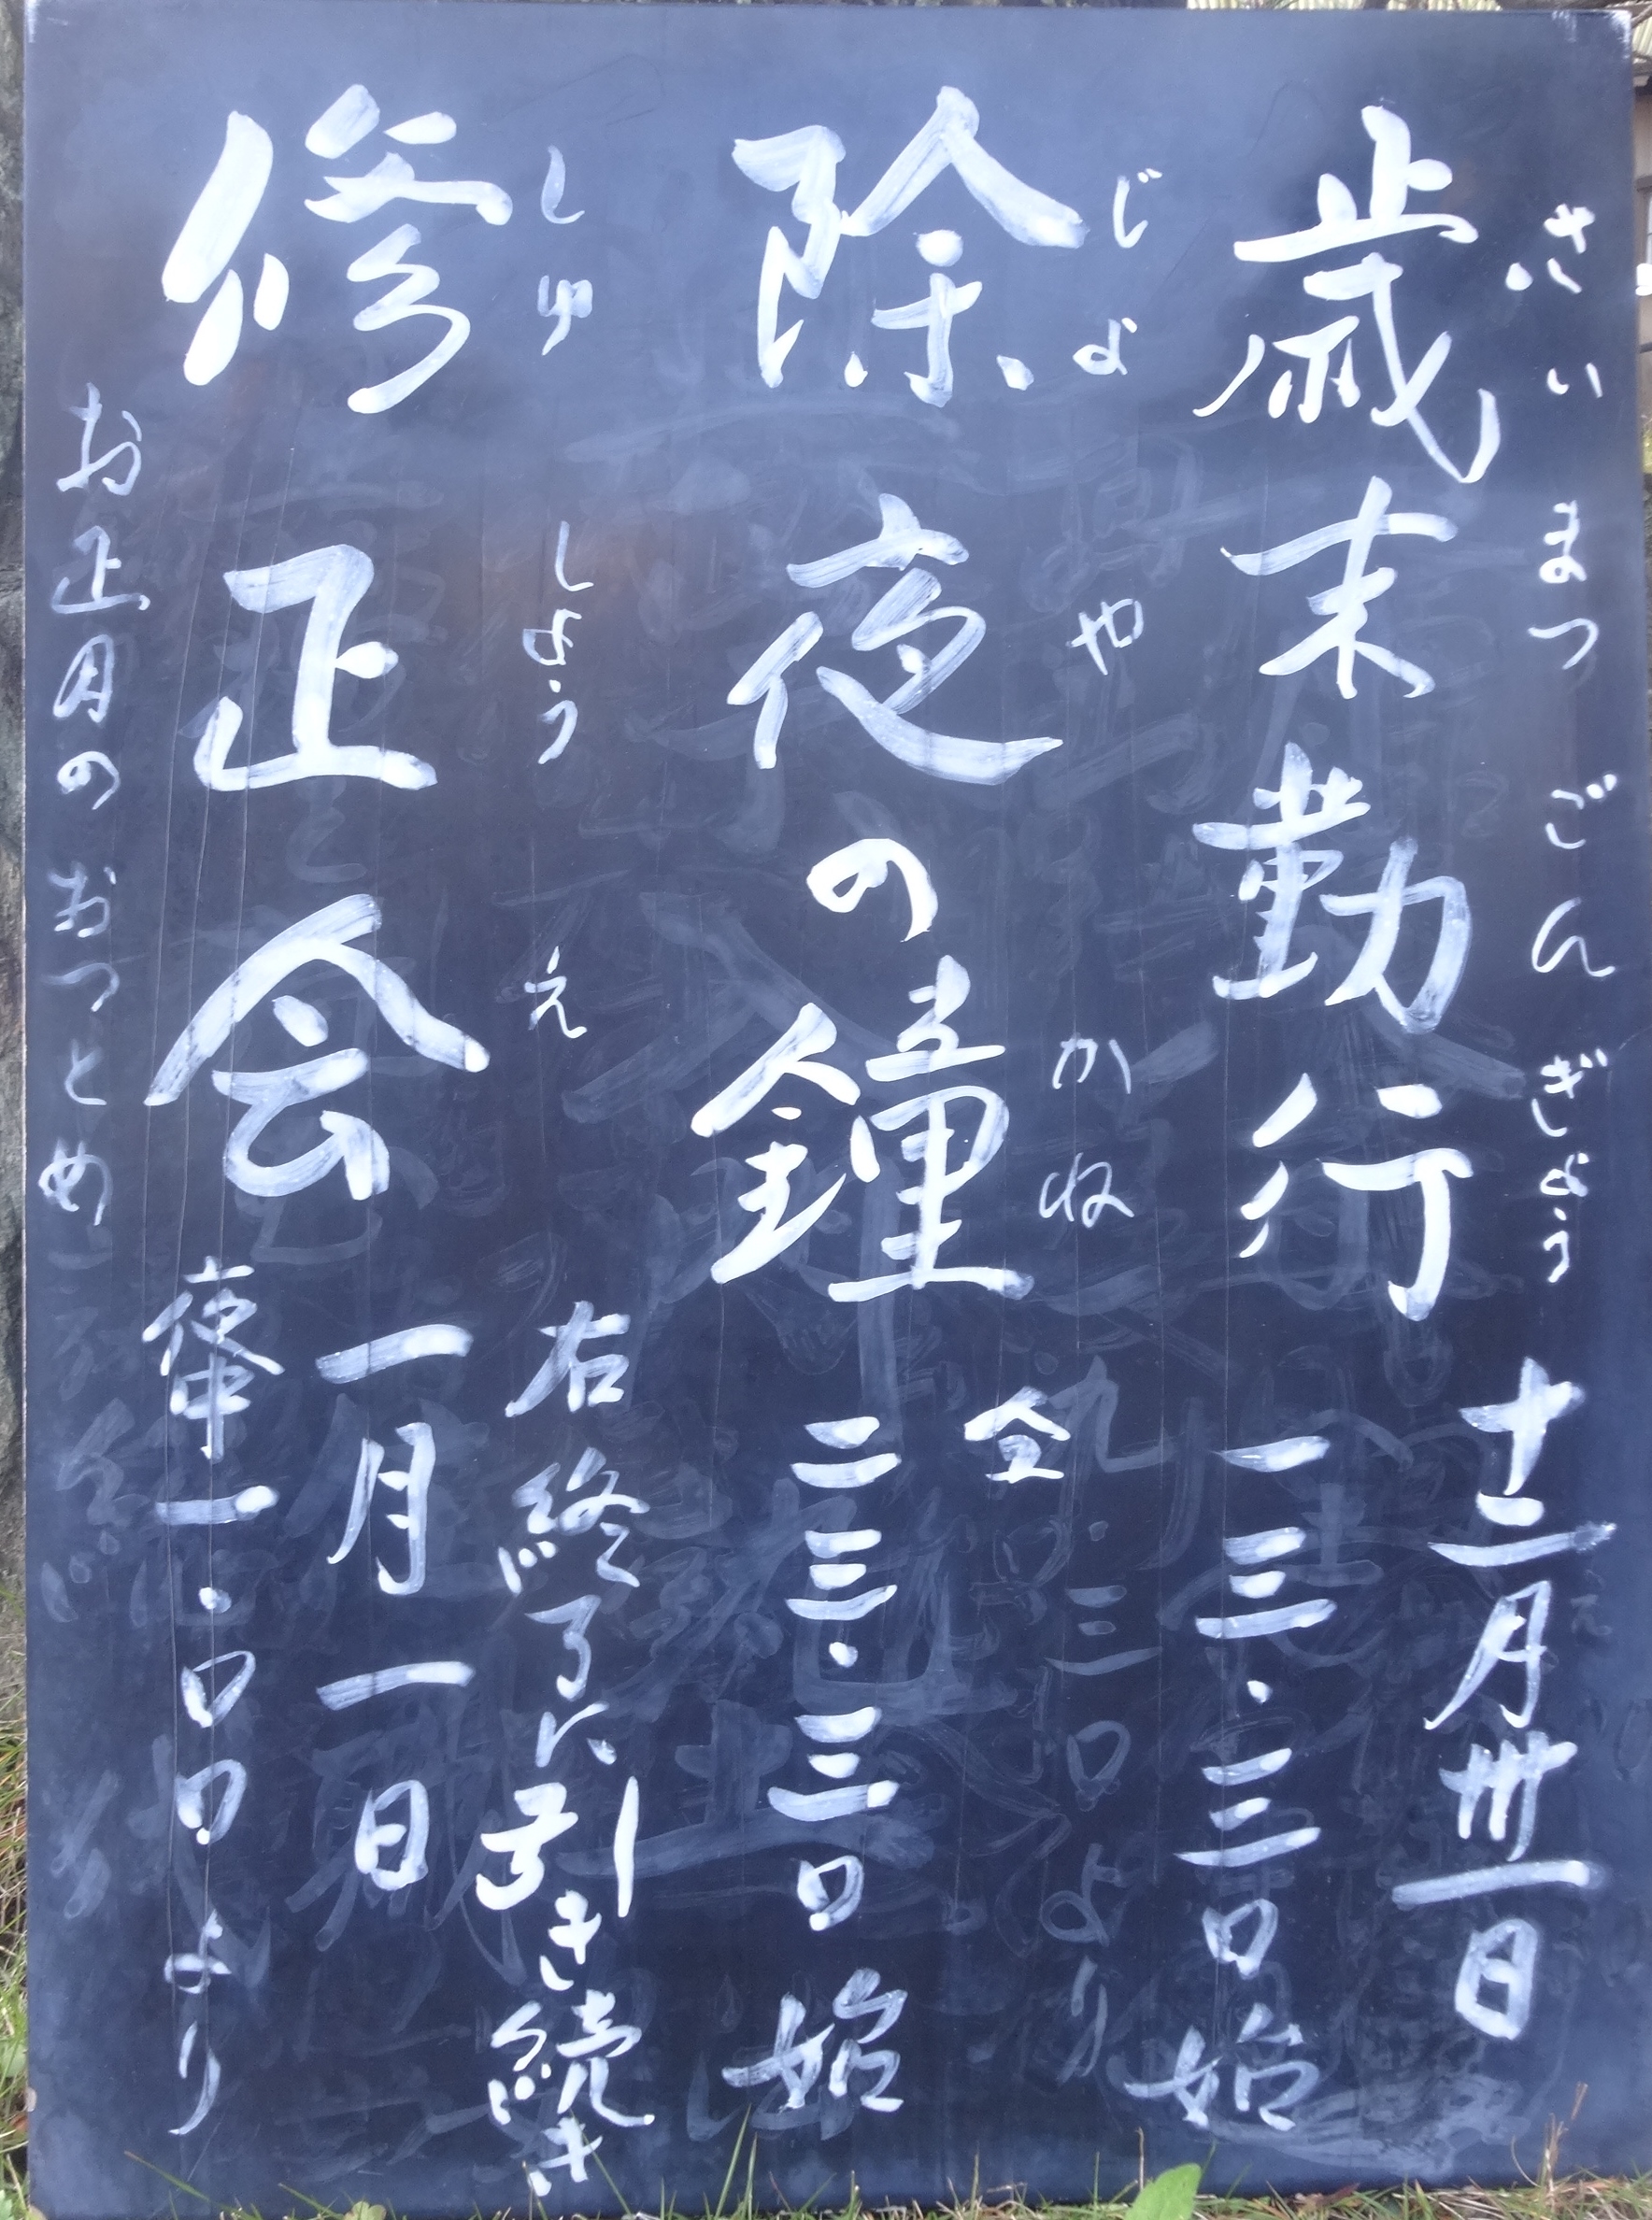 さいまつごんぎょう
歳末勤行
十二月卅一日
一三・三〇始
じょやかね
除夜の鐘
仝
二三・三〇始
しゅしょうえ
修正会
右終了に引き続き
一月一日
夜中一・〇〇より
お正月のおつとめ